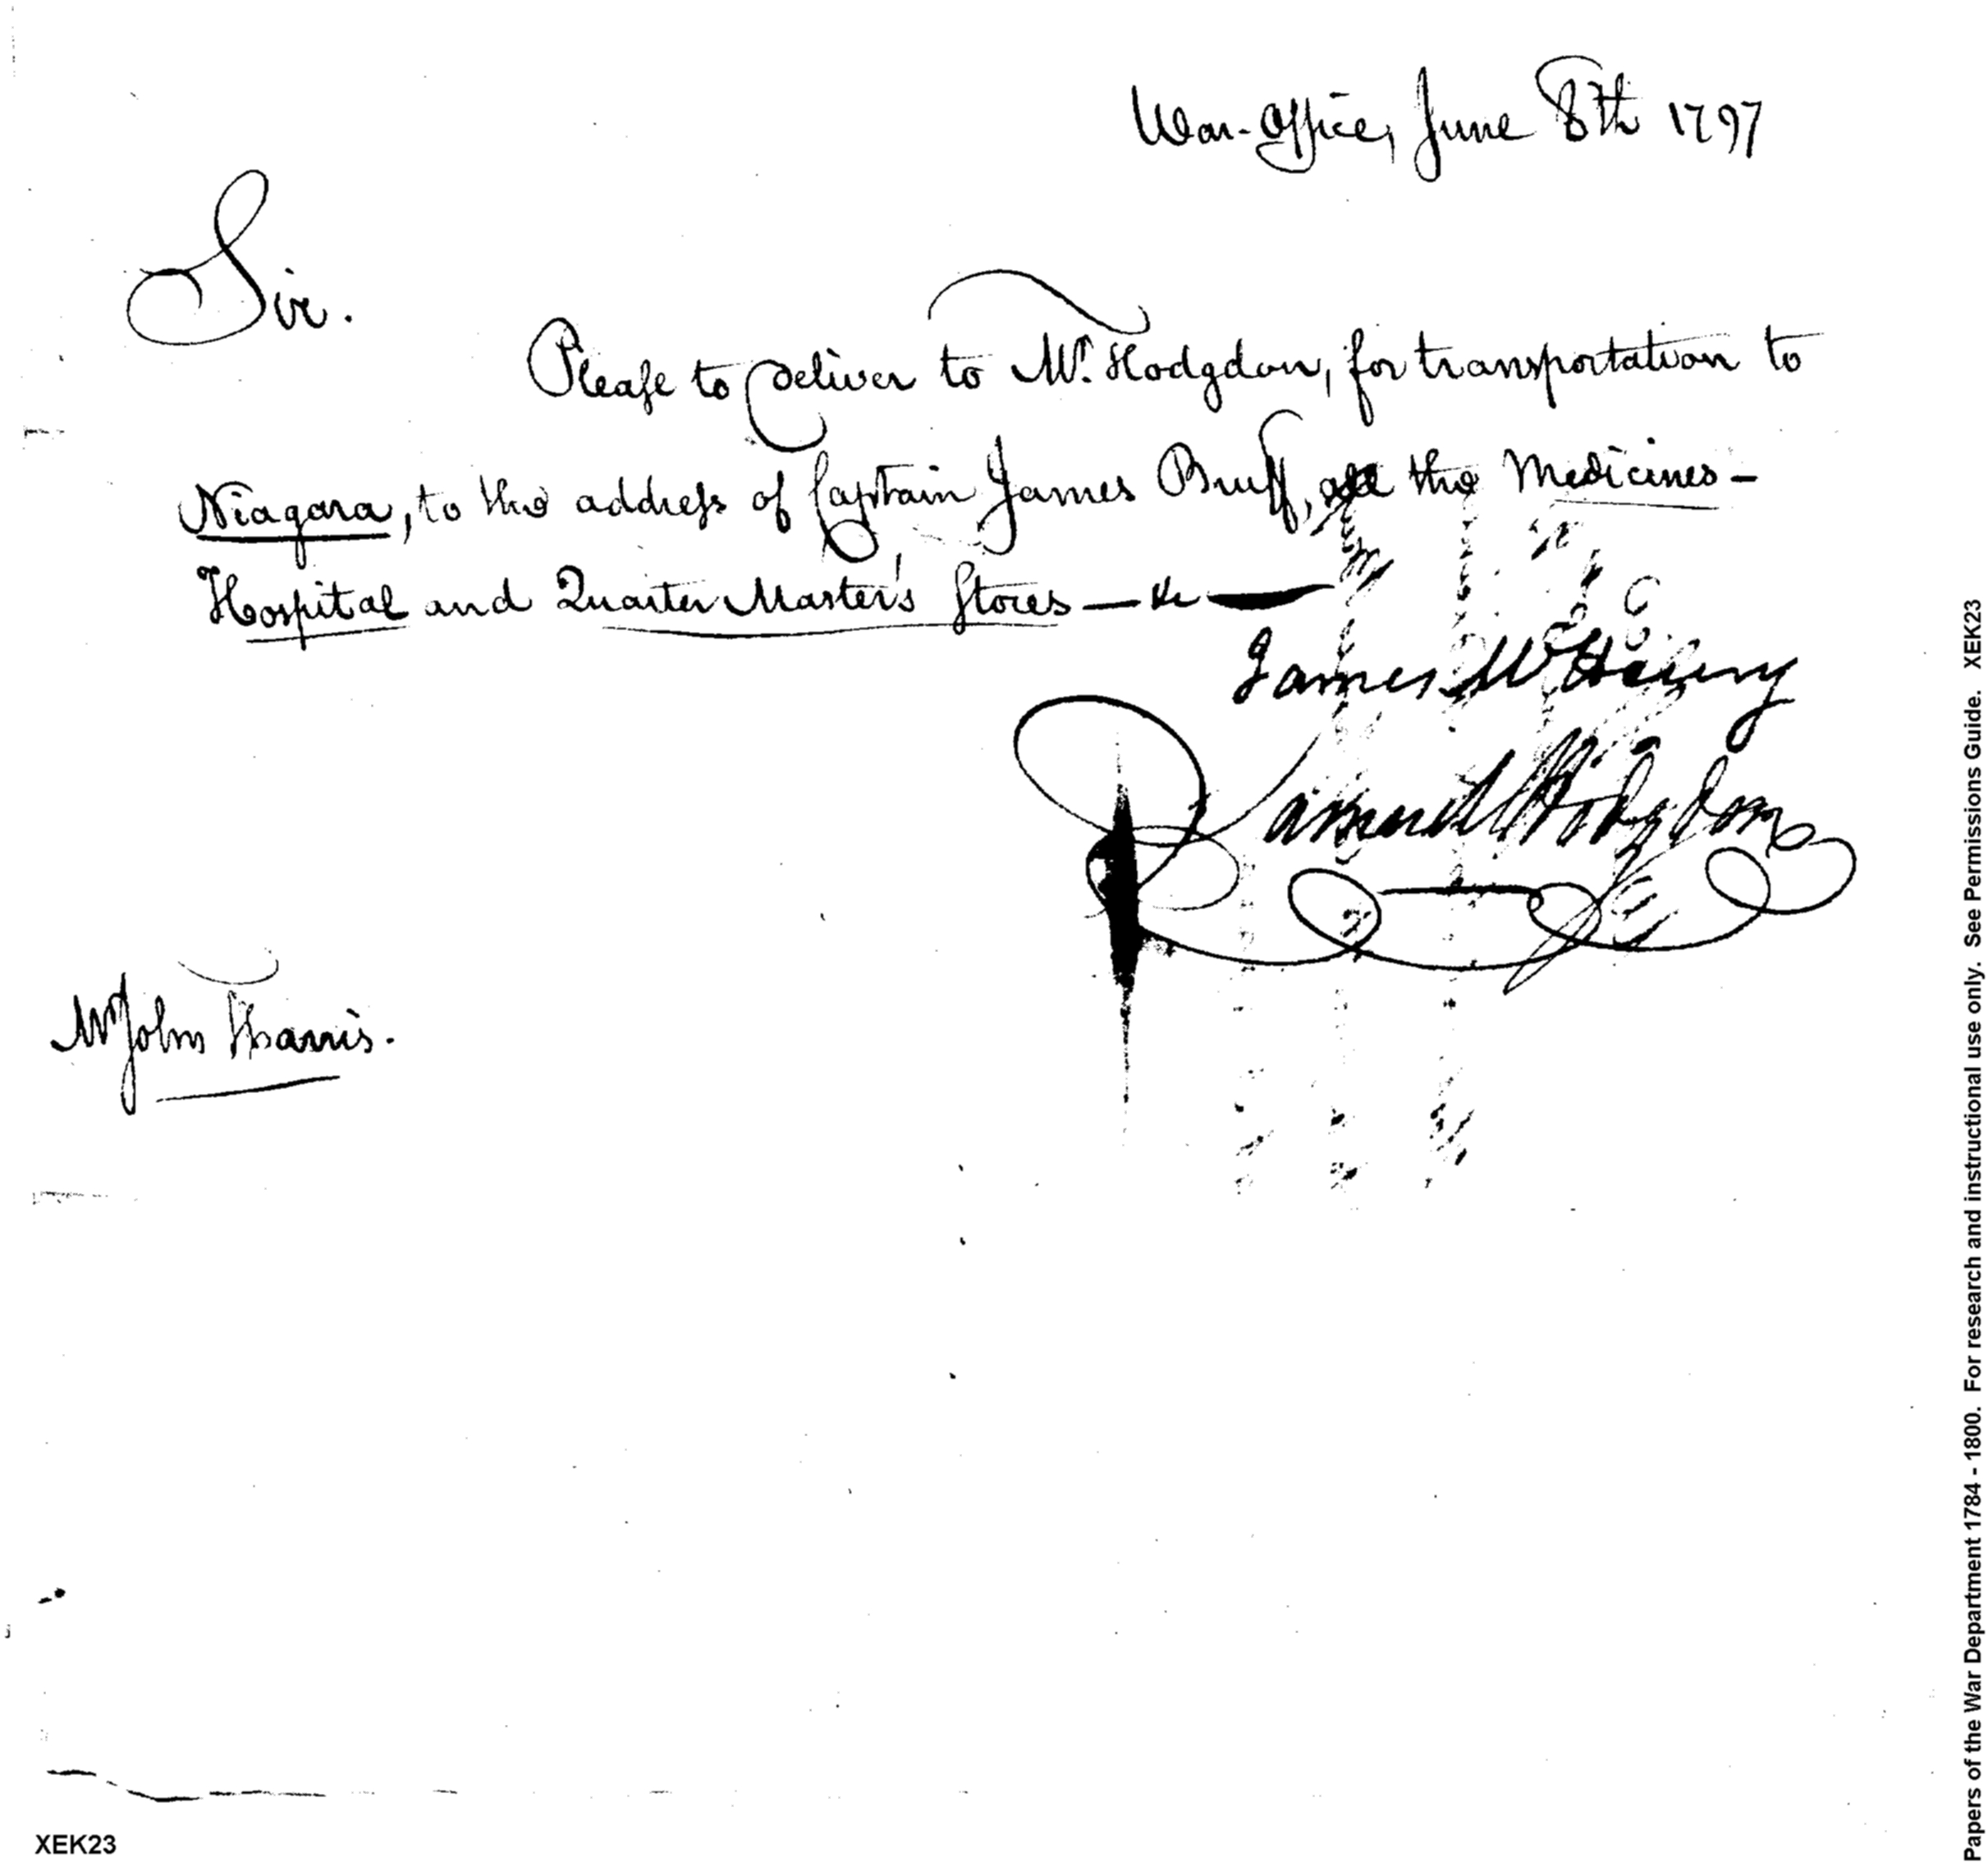 War-Office, June 8th 1797
Sir.
Please to Deliver to Mr. Hodgdon, for transportation to
Niagara, to the address of Captain James Bruff, all the Medicines-
Hospital and Quarter Master's Stores — &c —
James McHenry
Samuel Hodgdon
Mr John Harris.
XEK23
Papers of the War Department 1784 - 1800. For research and instructional use only. See Permissions Guide. XEK23